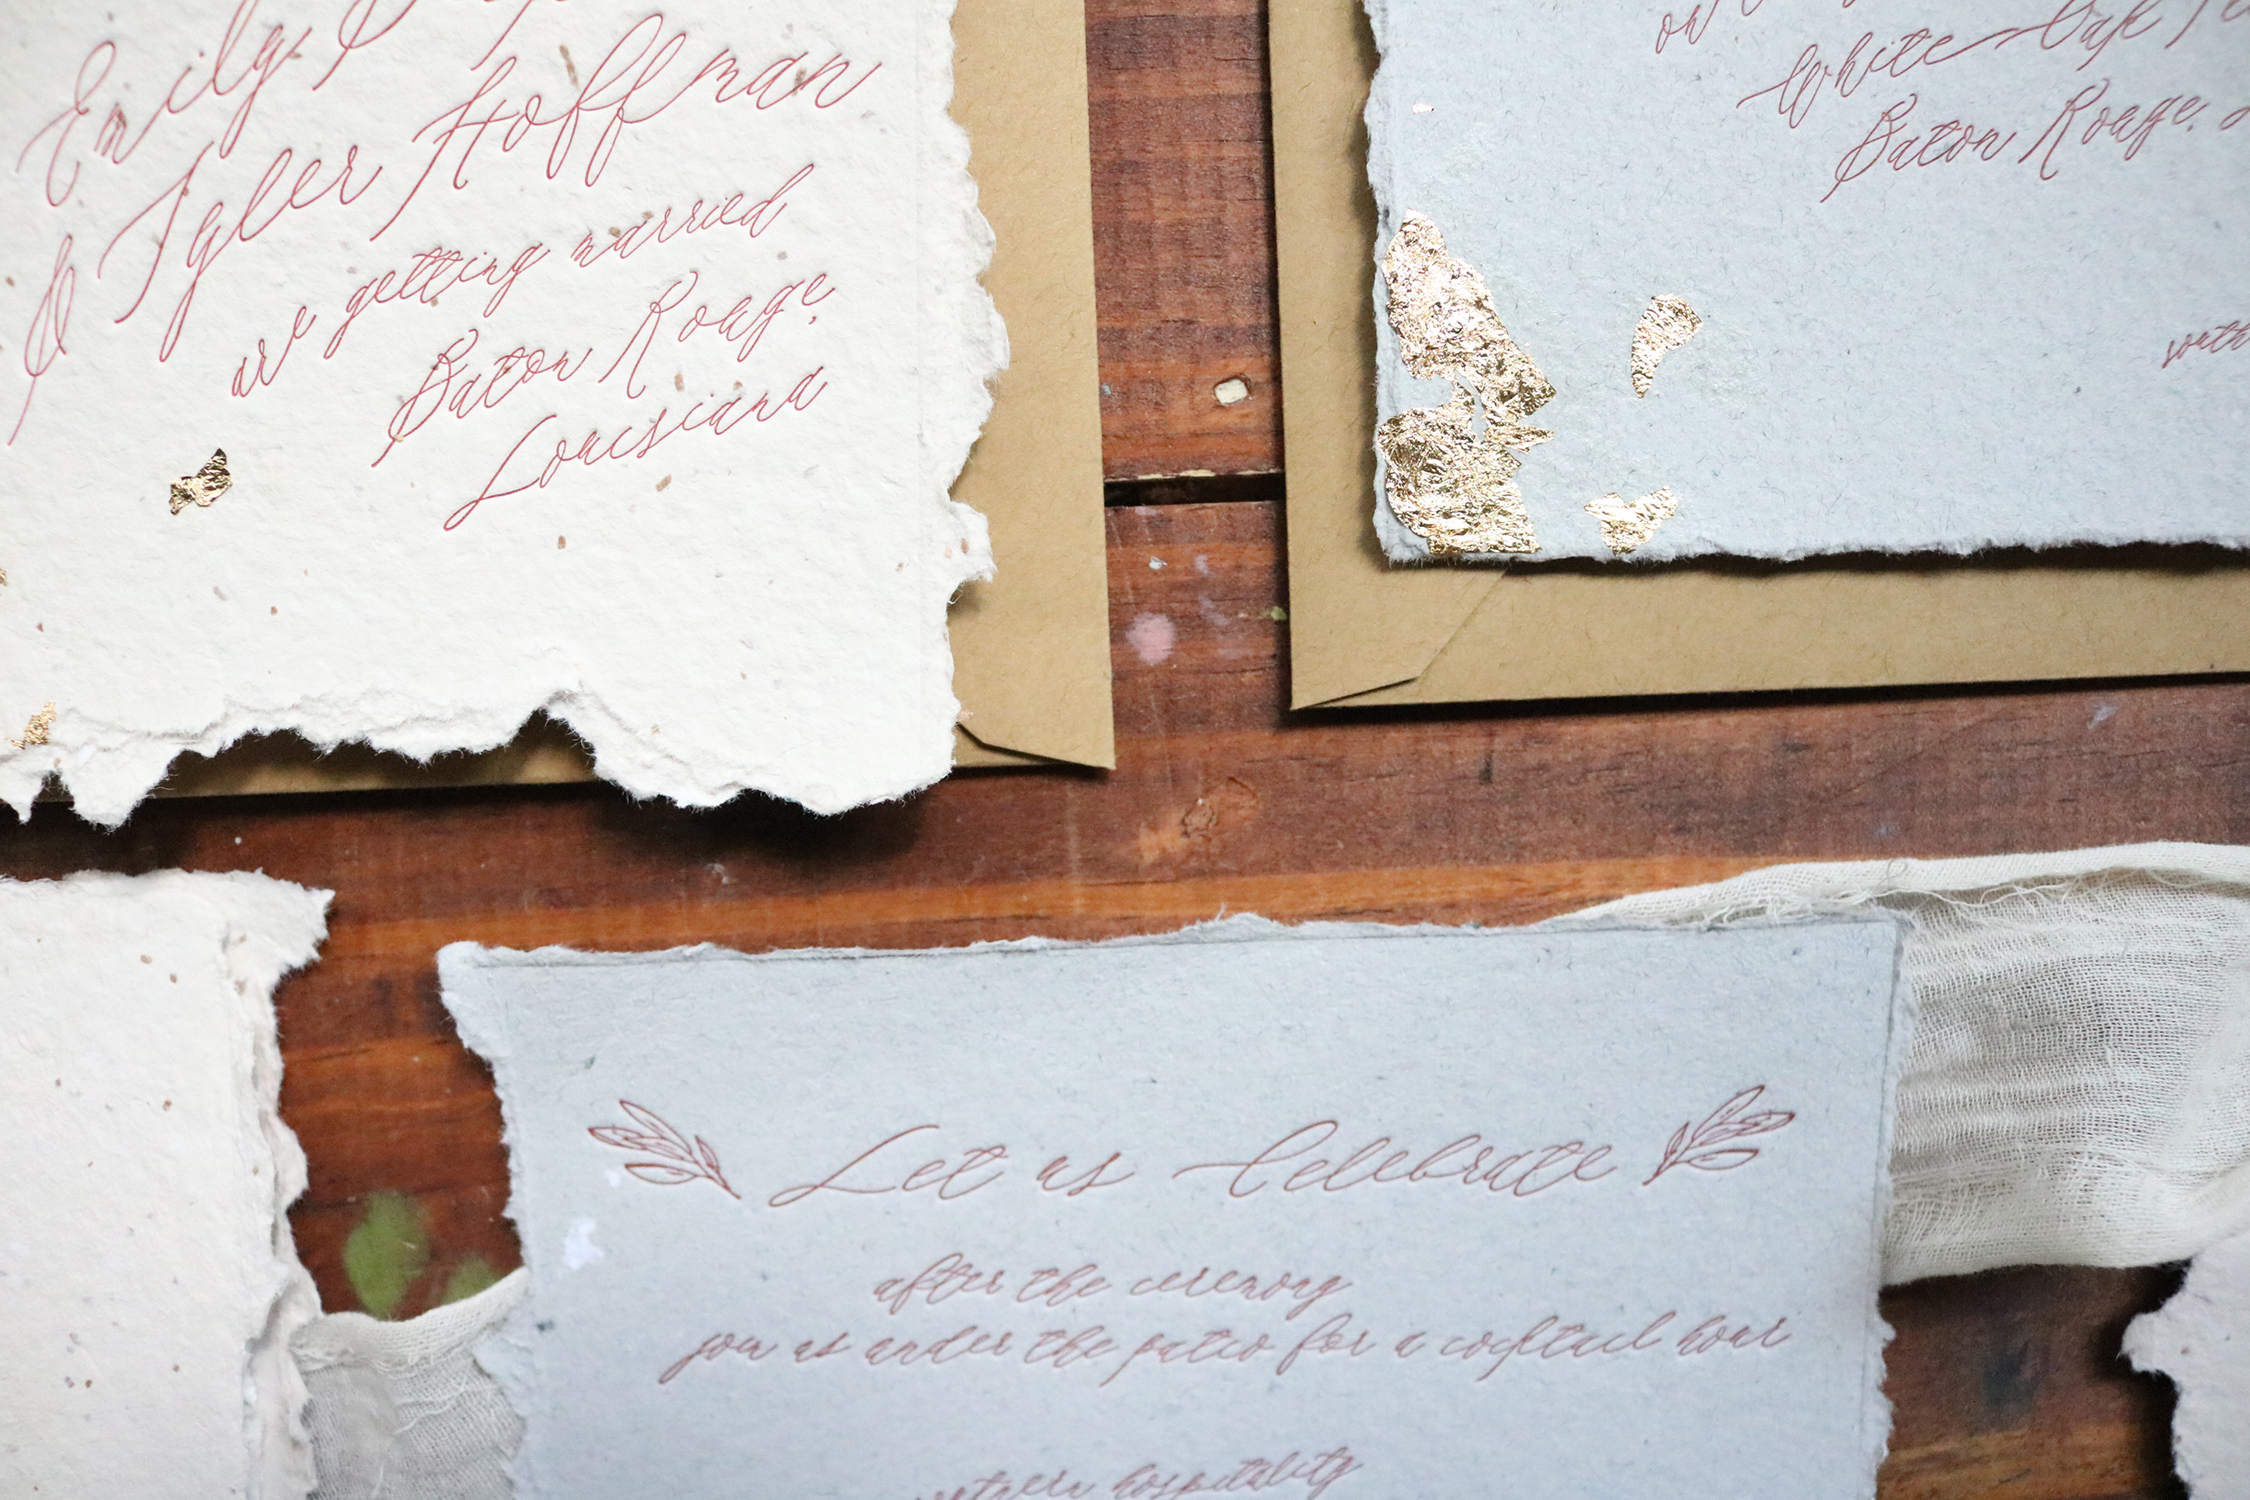 Emily
& Tyler Hoffman
are getting married
Baton Rouge,
Louisiana
on
White Oak
Baton Rouge,
south
Let us Celebrate
after the ceremony
join us under the patio for a cocktail hour
hospitality